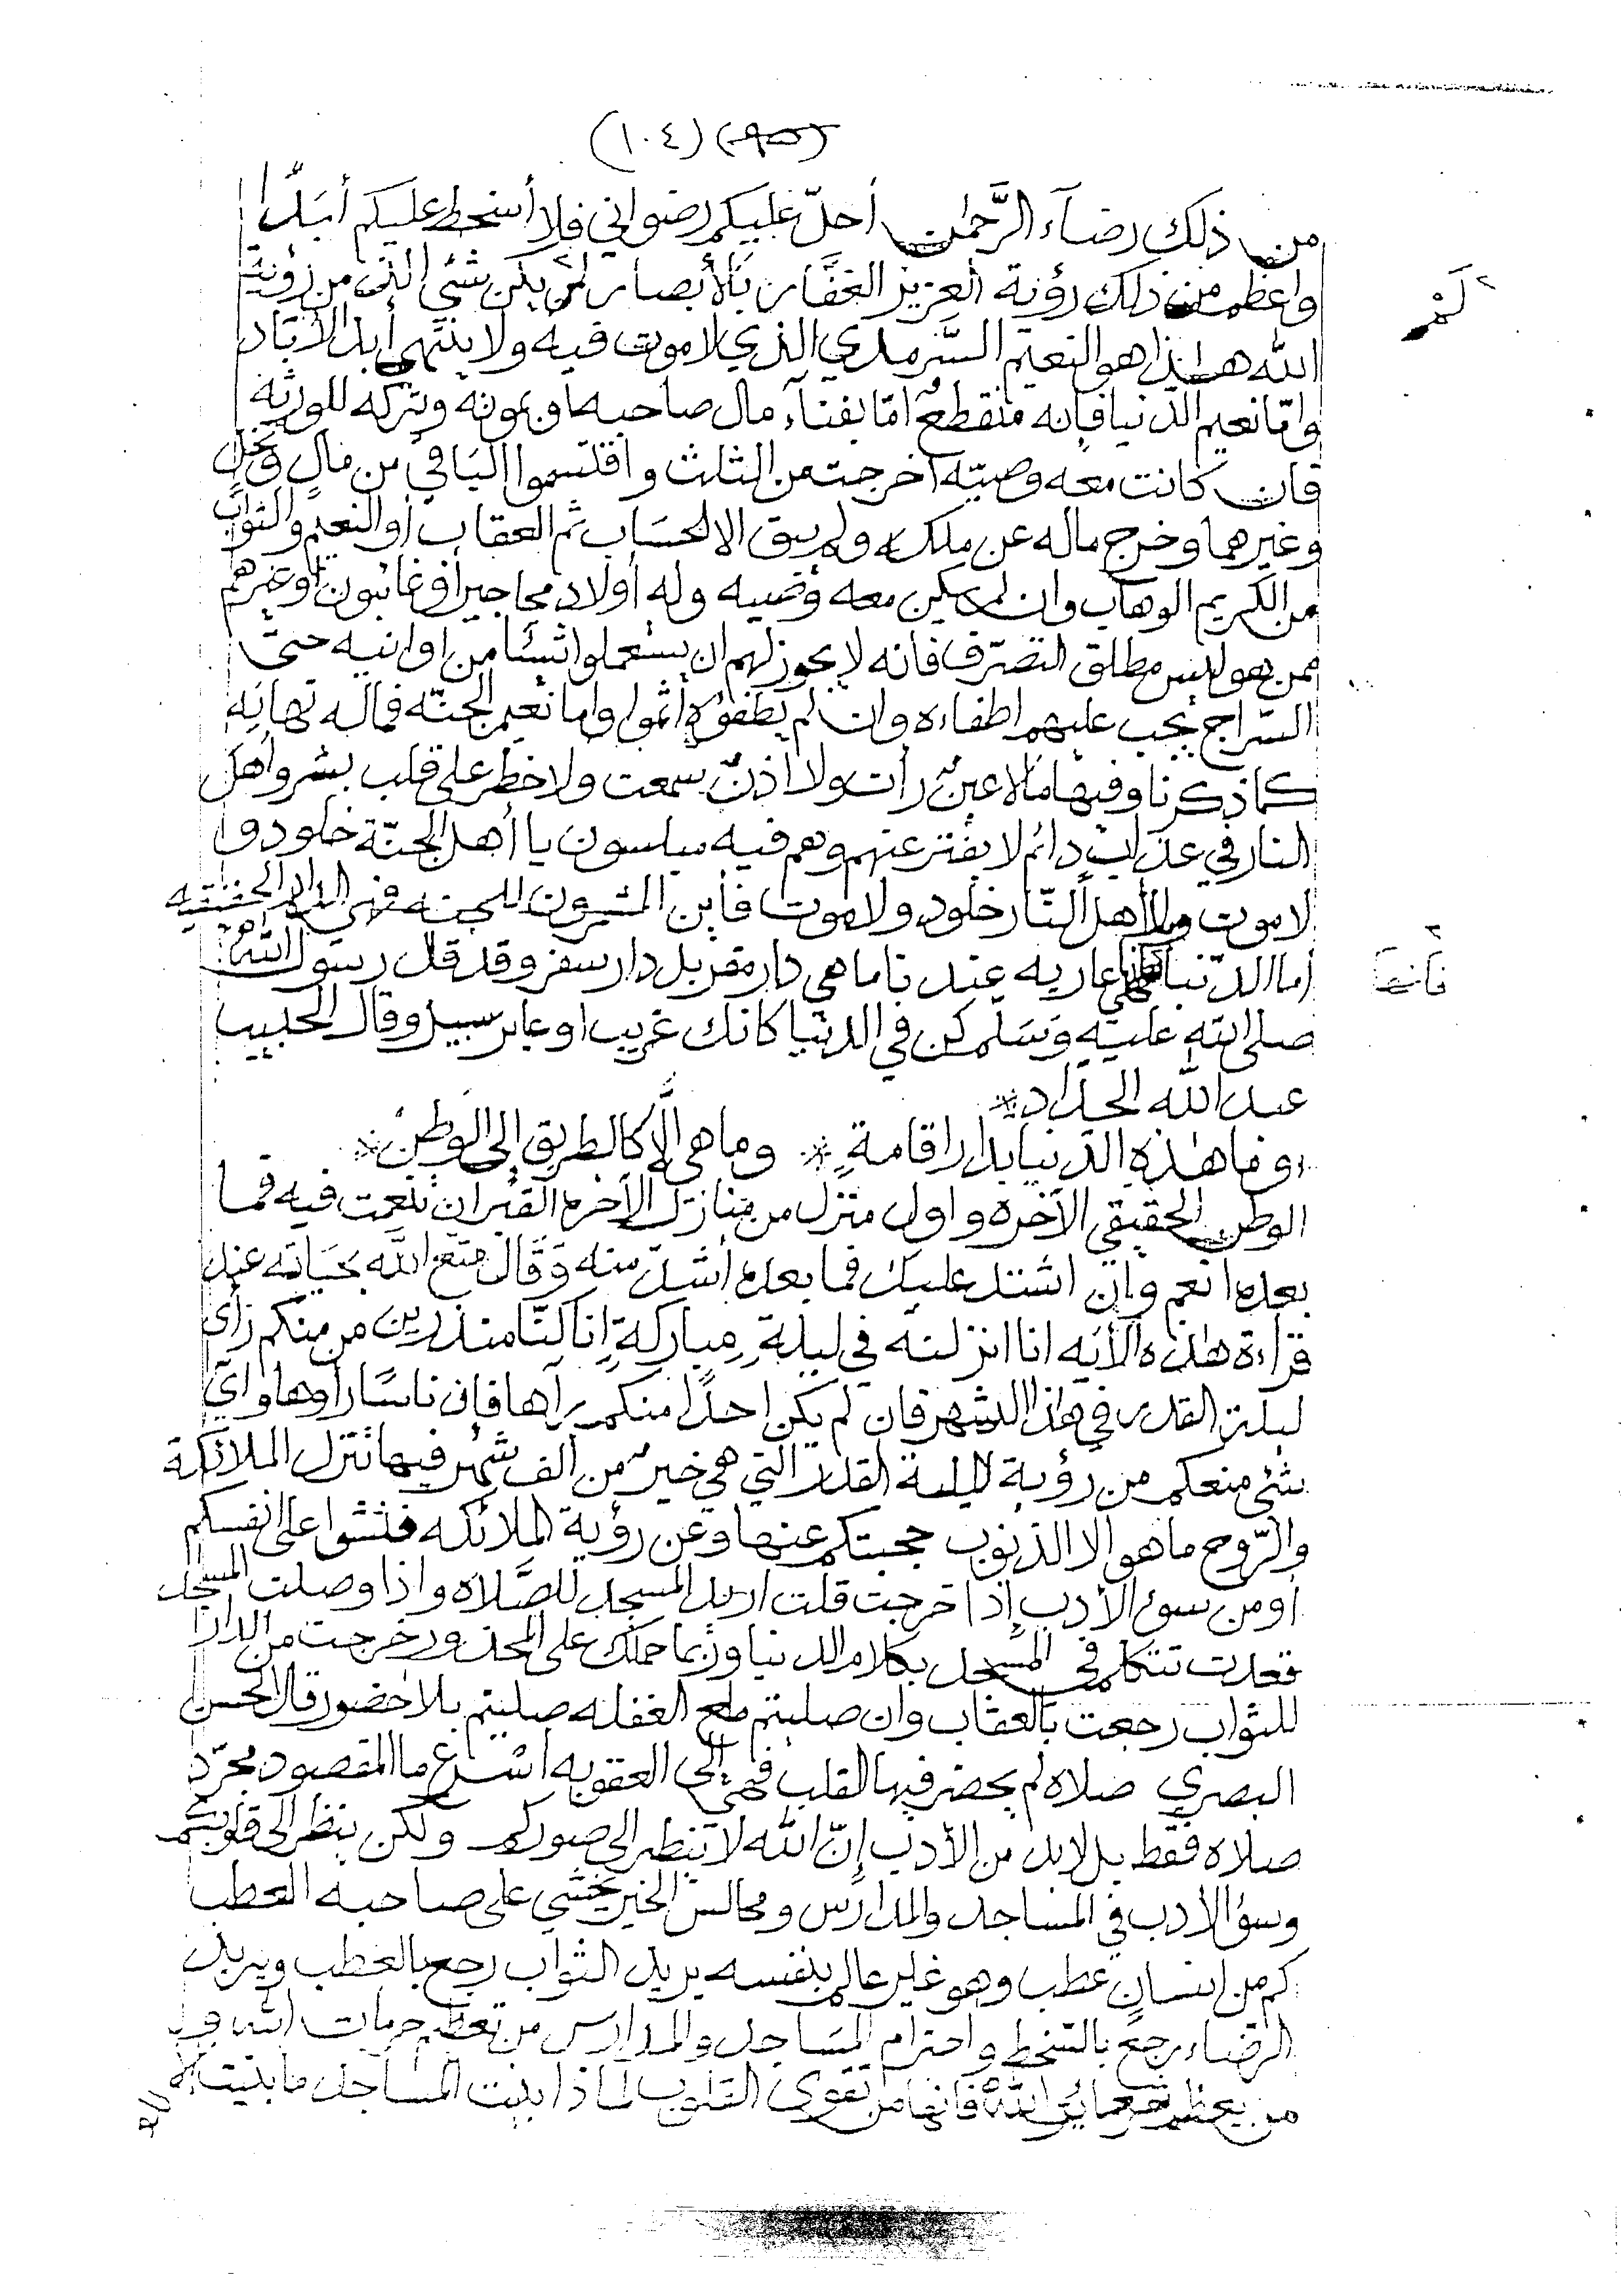 (١٠٤)
من ذلك رضآء الرَّحمٰن أحلّ عليكم رضواني فلا أسخط عليكم أبدًا
واعظم من ذلك رؤية العزيز الغفَّار بالأبصار لم يكن شئي الذّ من رؤية
لَمْ
الله هٰذا هو النعيم السَّرمدي الذي لا موت فيه ولا ينتهى أبد الأباد
وامّا نعيم الدنيا فإنه منقطعٌ امّا بفنآء مال صاحبه او بموته وتركه للورثه
فان كانت معه وصيّه اخرجت من الثلث واقتسموا الباقي من مالٍ ونخل
وغيرهما وخرج ماله عن ملكه ولم يبق الا الحسَاب ثم العقاب أو النعيم والثواب
من الكريم الوهاب وان لم يكن معه وصيه وله أولاد محاجير أو غائبون او غيرهم
ممن هو ليس مطلق التصرّف فانه لا يجوز لهم ان يستعملوا شيئا من اوانيه حتىٰ
السّراج يجب عليهم اطفاءه وان لم يطفؤه أثموا واما نعيم الجنّه فماله نهايه
كما ذكرنا وفيها مالا عينٌ رأت ولا اذنٌ سمعت ولا خطر على قلب بشر وأهل
النار في عذابٍ دائم لا يفتر عنهم وهم فيه مبلسون يا أهل الجنّة خلود و
لا موت ويا أهل النّار خلود ولا موت فأين المشمرون للجنه فهي الدار الحقيقيه
أما الدّنيا فإنها عاريه عندنا ما هي دار مقر بل دار سفر وقد قال رسول اللّه
فأنها
صلى الله عليه وَسَلم كن في الدنيا كانك غريب او عابر سبيل وقال الحبيب
عبد اللّه الحدّاد *
وما هٰذه الدنيا بدار اقامةٍ * وما هي إلَّا كالطريق إلى الوطن *
الوطن الحقيقي الآخره واول منزل من منازل الأخره القبر ان نعمت فيه فما
بعده انعم وان اشتد عليك فما بعده أشدّ منه وَقال متع اللّه بحيَاته عند
قرأءة هٰذه الأيه انا انزلنه في ليلةٍ مباركةٍ إنا كنّا منذرين من منكم رأى
ليلة القدر في هٰذا الشهر فان لم يكن احدًا منكم رآها فإن ناسًا رأوها وايّ
شئي منعكم من رؤية ليلة القدر التي هي خيرٌ من ألف شهر فيها تنزل الملائكة
والرّوح ما هو الا الذنوب حجبتكم عنها وعن رؤية الملائكه فتشوا على انفسكم
أو من سوء الأدب إذا خرجت قلت اريد المسجد للصَّلاة واذا وصلت المسجد
قعدت تتكلم في المسجد بكلام الدنيا وربما حملك على المحذور خرجت من الدار
للثواب رجعت بالعقاب وان صليتم مع الغفله صليتم بلا حضور قال الحسن
البصري صلاه لم يحضر فيها القلب فهي إلى العقوبه اسرع ما المقصود مجرّد
صلاه فقط بل لابد من الأدب إنّ اللّه لا ينظر إلى صوركم ولكن ينظر إلى قلوبكم
وسؤالأدب في المساجد والمدارس ومجالس الخير يخشي على صاحبه العطب
كم من انسانٍ عطب وهو غير عالم بنفسه يريد الثواب رجع بالعطب ويريد
الرضاء رجع بالسّخط واحترام المسَاجد والمدارس من تعظيم حرمات اللّه
من يعظم شعائر اللّه فانها من تقوى القلوب لماذا بنيت المسَاجد ما بنيت إلا